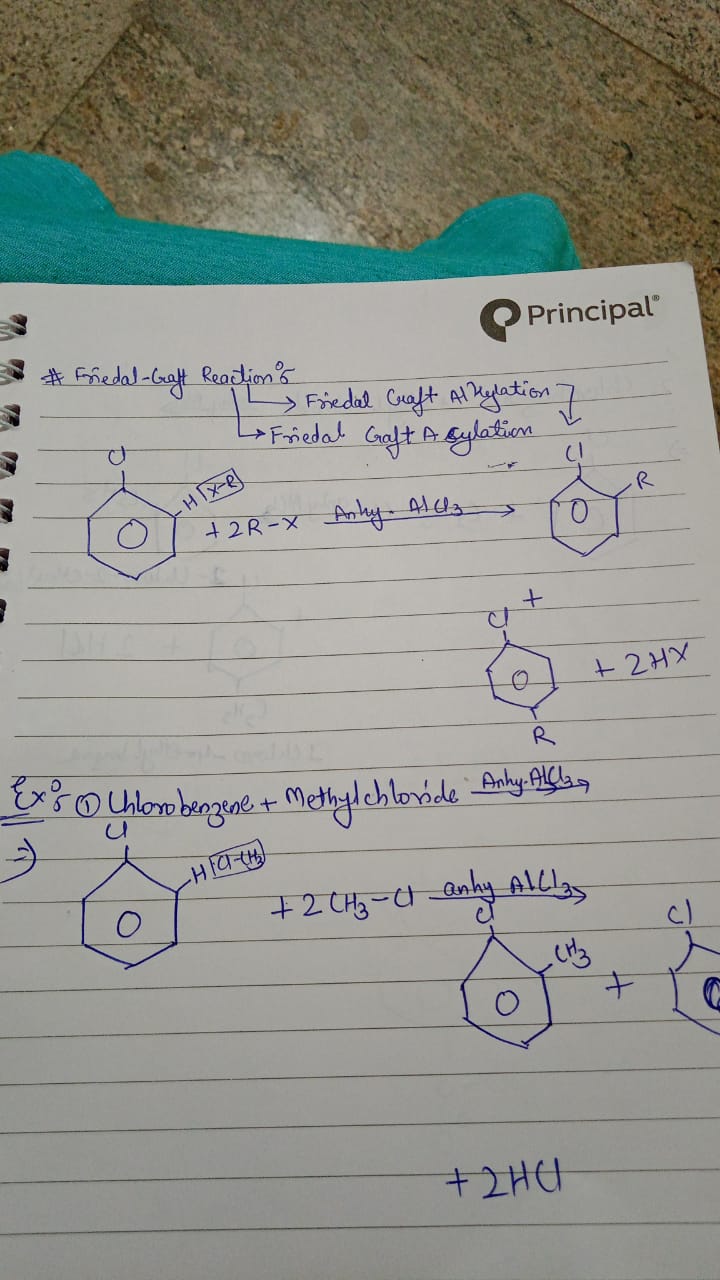 Principal®
# Friedal-Craft Reaction:
→ Friedal Craft Alkylation
→ Friedal Craft Acylation
Cl
Cl
H X-R
R
+ 2R-X Anhy. AlCl3
+
Cl
+ 2HX
R
Ex: ① Chlorobenzene + Methylchloride Anhy. AlCl3
Cl
⇒
H Cl-CH3
+ 2 CH3-Cl anhy AlCl3
Cl
Cl
CH3
+
+ 2HCl